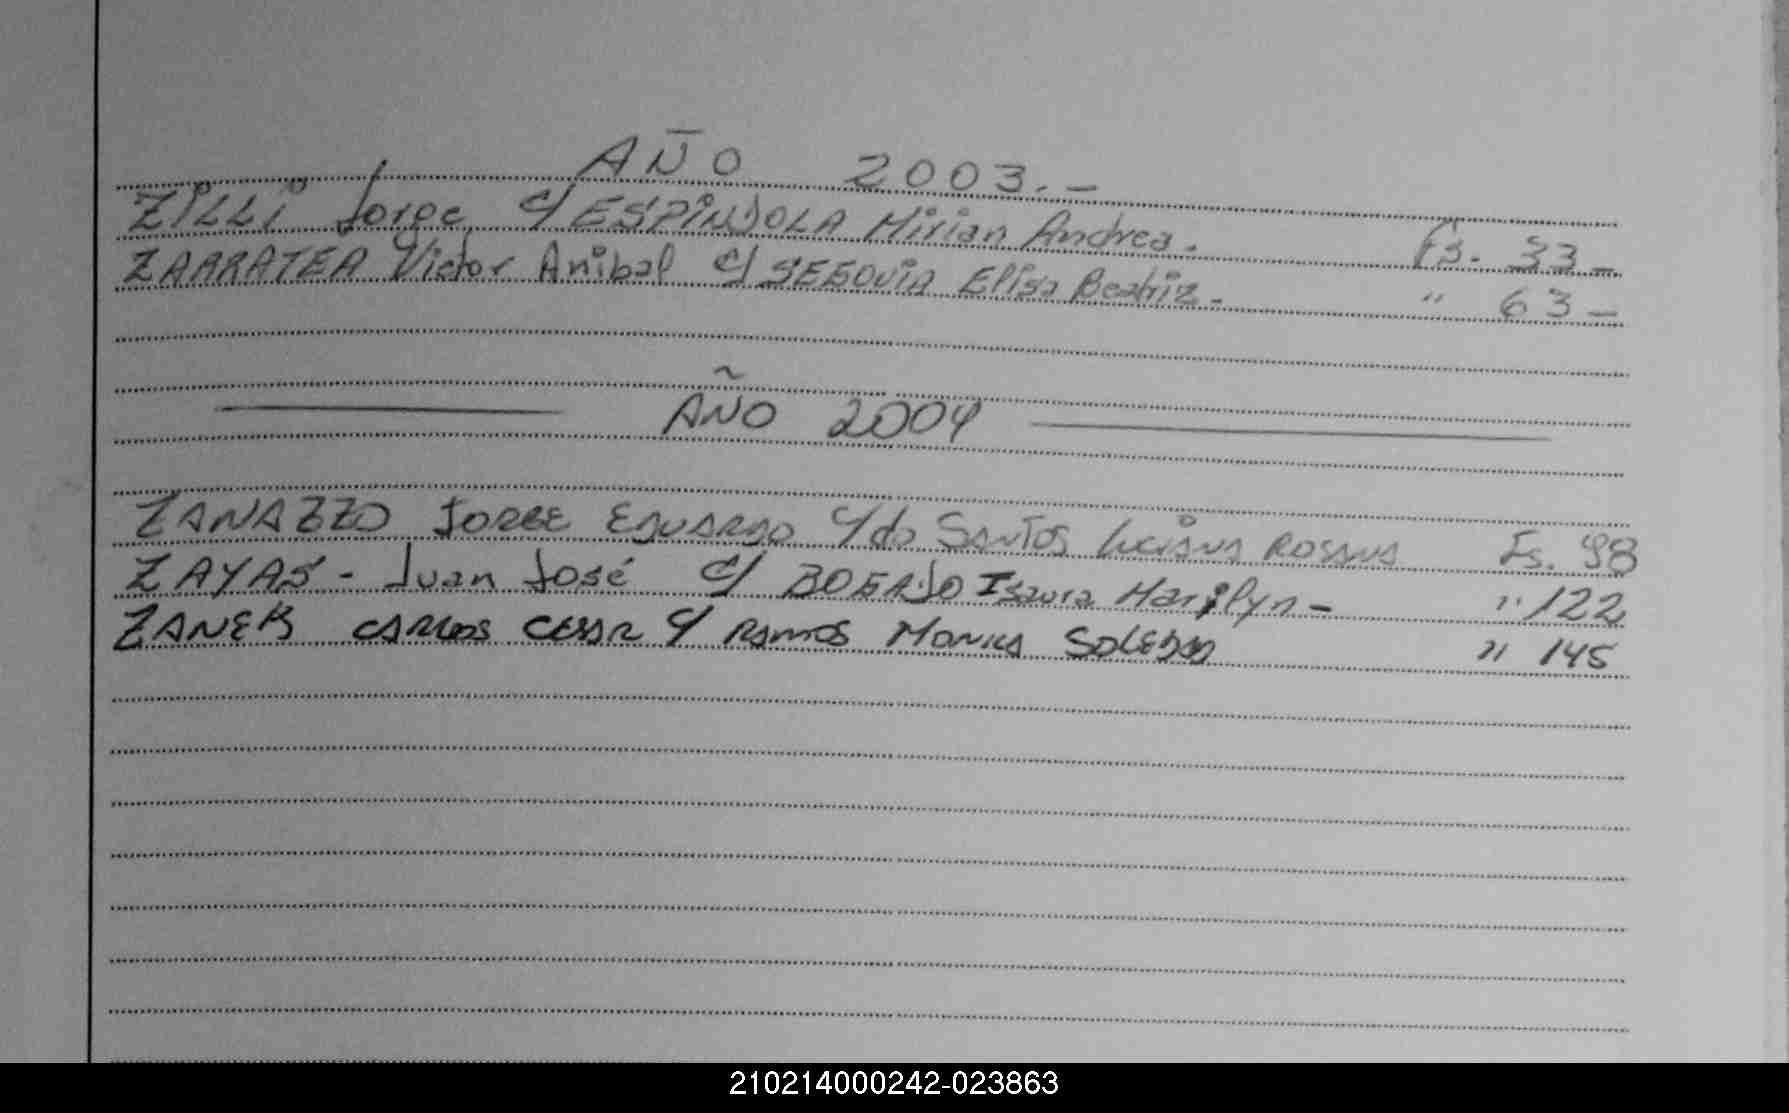 AÑO 2003.-
ZILLI Jorge c/ ESPINDOLA Mirian Andrea. Fs. 33-
ZAARATEA Victor Anibal c/ SEGOVIA Elisa Beatriz- " 63-
AÑO 2004
ZANAZZO JORGE EDUARDO c/ do SANTOS Luciana ROSANA Fs. 98
ZAYAS- Juan José c/ Isaura Marilyn- " 122
ZANEK CARLOS CESAR c/ RAMOS MONICA SOLEDAD " 145
210214000242-023863